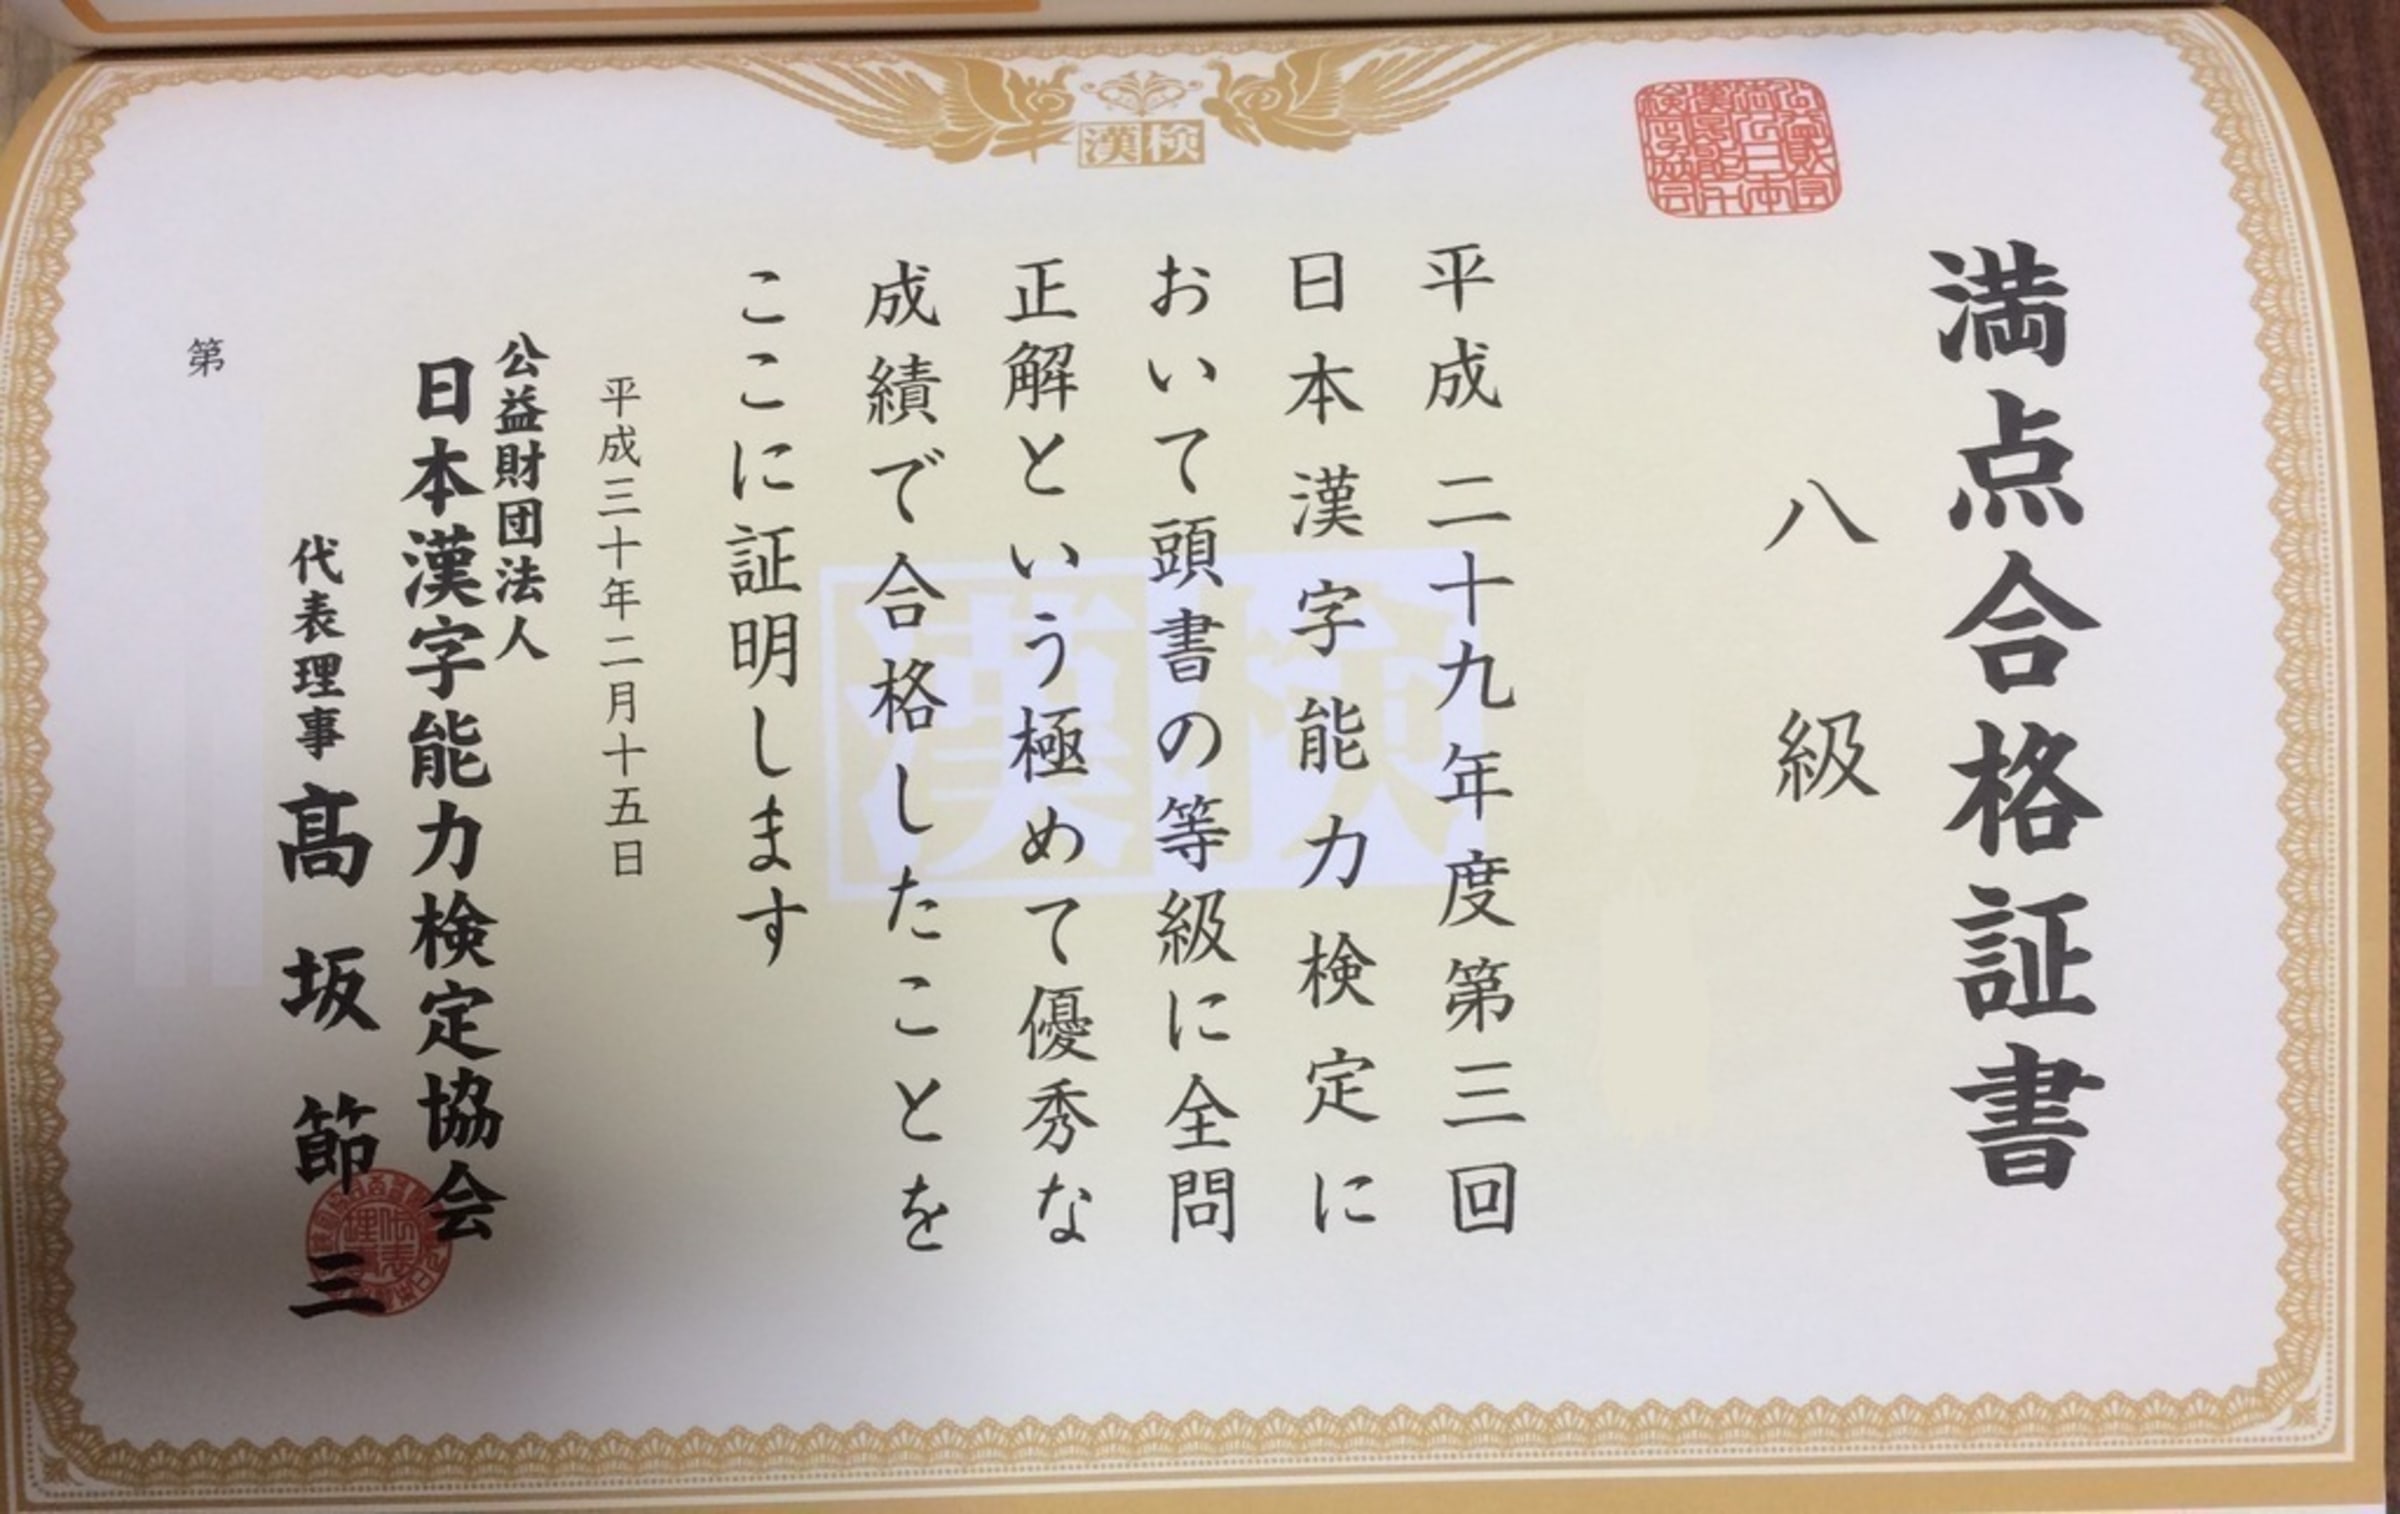 漢検
満点合格証書
八級
平成二十九年度第三回
日本漢字能力検定に
おいて頭書の等級に全問
正解という極めて優秀な
成績で合格したことを
ここに証明します
平成三十年二月十五日
公益財団法人
日本漢字能力検定協会
代表理事 髙坂節三
第
漢検